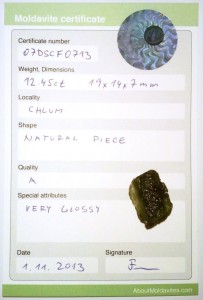 Moldavite certificate
Certificate number
07DSCF0713
Weight, Dimensions
12.45ct 19x14x7mm
Locality
CHLUM
Shape
NATURAL PIECE
Quality
A
Special attributes
VERY GLOSSY
Date
Signature
1.11.2013
AboutMoldavites.com